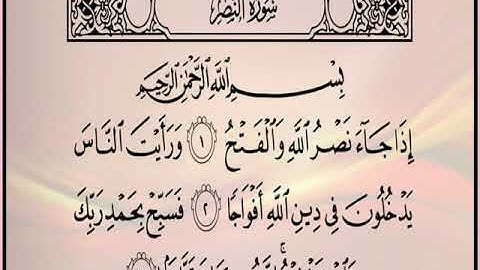 سُورَةُ النَّصْرِ
بِسْمِ اللَّهِ الرَّحْمَٰنِ الرَّحِيمِ
إِذَا جَآءَ نَصْرُ اللَّهِ وَالْفَتْحُ ١ وَرَأَيْتَ النَّاسَ
يَدْخُلُونَ فِى دِينِ اللَّهِ أَفْوَاجًا ٢ فَسَبِّحْ بِحَمْدِ رَبِّكَ